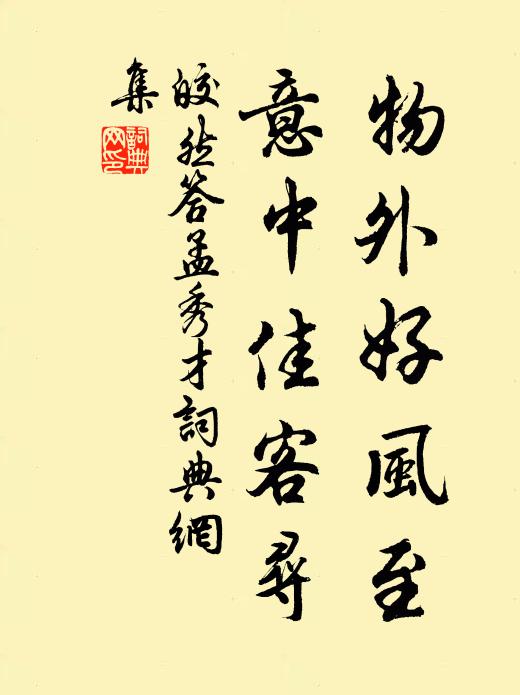 物外好風至
意中佳客尋
皎然答孟秀才詞典網
集
詞典
网印